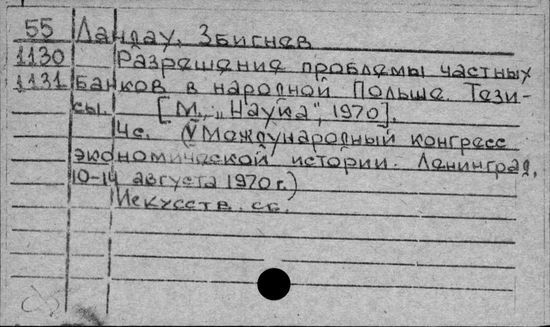 55 Ландау, Збигнев
1130 Разрешение проблемы частных
1131 банков в народной Польше. Тези-
сы. [М., „Наука", 1970].
4с. (V Международный конгресс
экономической истории. Ленинград,
10-14 августа 1970 г.)
Искусств. сб.